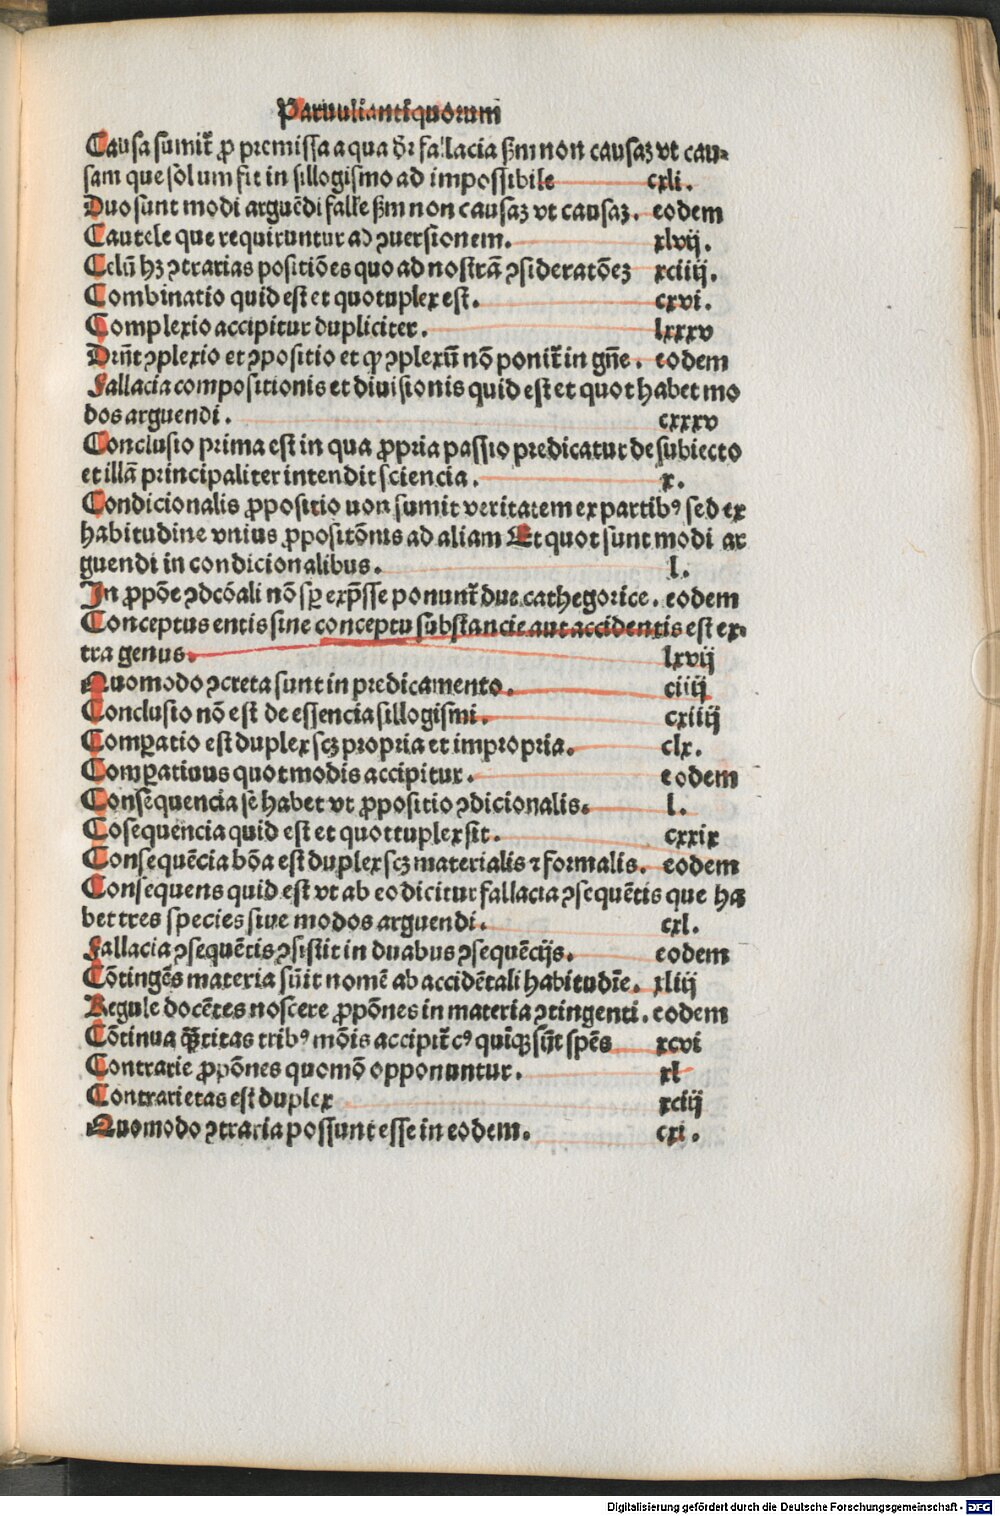 Paruuli antiquorum
Causa sumit᷑ ꝓ premissa a qua dr̄ fallacia ẜm non causaꝫ vt cau-
sam que solum fit in sillogismo ad impossibile cxli.
Duo sunt modi arguēdi fall'e ẜm non causaꝫ vt causaꝫ. eodem
Cautele que requiruntur ad ↄuersionem. xlvij.
Celū hꝫ ↄtrarias positiōes quo ad nostrā ↄsideratōeꝫ xciiij.
Combinatio quid est et quotuplex est. cxvi.
Complexio accipitur dupliciter. lxxxv
Drn̄t ↄplexio et ↄpositio et qꝛ ↄplexū nō ponit᷑ in gn̄e. eodem
Fallacia compositionis et diuisionis quid est et quot habet mo
dos arguendi. cxxxv
Conclusio prima est in qua ꝓpria passio predicatur de subiecto
et illā principaliter intendit sciencia. x.
Condicionalis ꝓpositio non sumit veritatem ex partibꝰ sed ex
habitudine vnius ꝓpositōnis ad aliam Et quot sunt modi ar
guendi in condicionalibus. l.
In ꝓpōe ↄdcōali nō sꝑ exp̄sse ponunt᷑ due cathegorice. eodem
Conceptus entis sine conceptu substancie aut accidentis est ex-
tra genus. lxvij
Quomodo ↄcreta sunt in predicamento. ciiij
Conclusio nō est de essencia sillogismi. cxiiij
Comꝑatio est duplex scꝫ propria et impropria. clx.
Comꝑatiuus quot modis accipitur. eodem
Consequencia se habet vt ꝓpositio ↄdicionalis. l.
Cosequencia quid est et quottuplex sit. cxxix
Consequēcia bōa est duplex scꝫ materialis ⁊ formalis. eodem
Consequens quid est vt ab eo dicitur fallacia ↄsequētis que ha
bet tres species siue modos arguendi. cxl.
Fallacia ↄsequētis ↄsistit in duabus ↄsequēcijs. eodem
Cōtingēs materia sūit nomē ab accidētali habitudīe. xliij
Regule docētes noscere ꝓpōnes in materia ↄtingenti. eodem
Cōtinua q̄ꝫtitas tribꝰ mōis accipit᷑ cꝰ quīqꝫ sūt spēs xcvi
Contrarie ꝓpōnes quomō opponuntur. xl
Contrarietas est duplex xciij
Quomodo ↄtraria possunt esse in eodem. cxi.
Digitalisierung gefördert durch die Deutsche Forschungsgemeinschaft - DFG